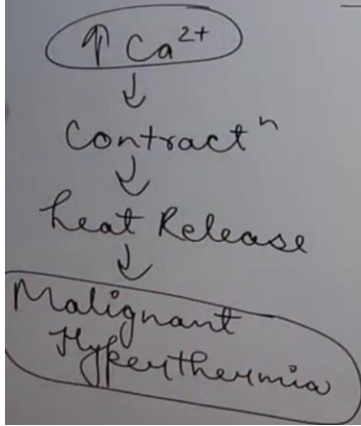 ↑ Ca²⁺
↓
Contractⁿ
↓
heat Release
↓
Malignant
Hyperthermia